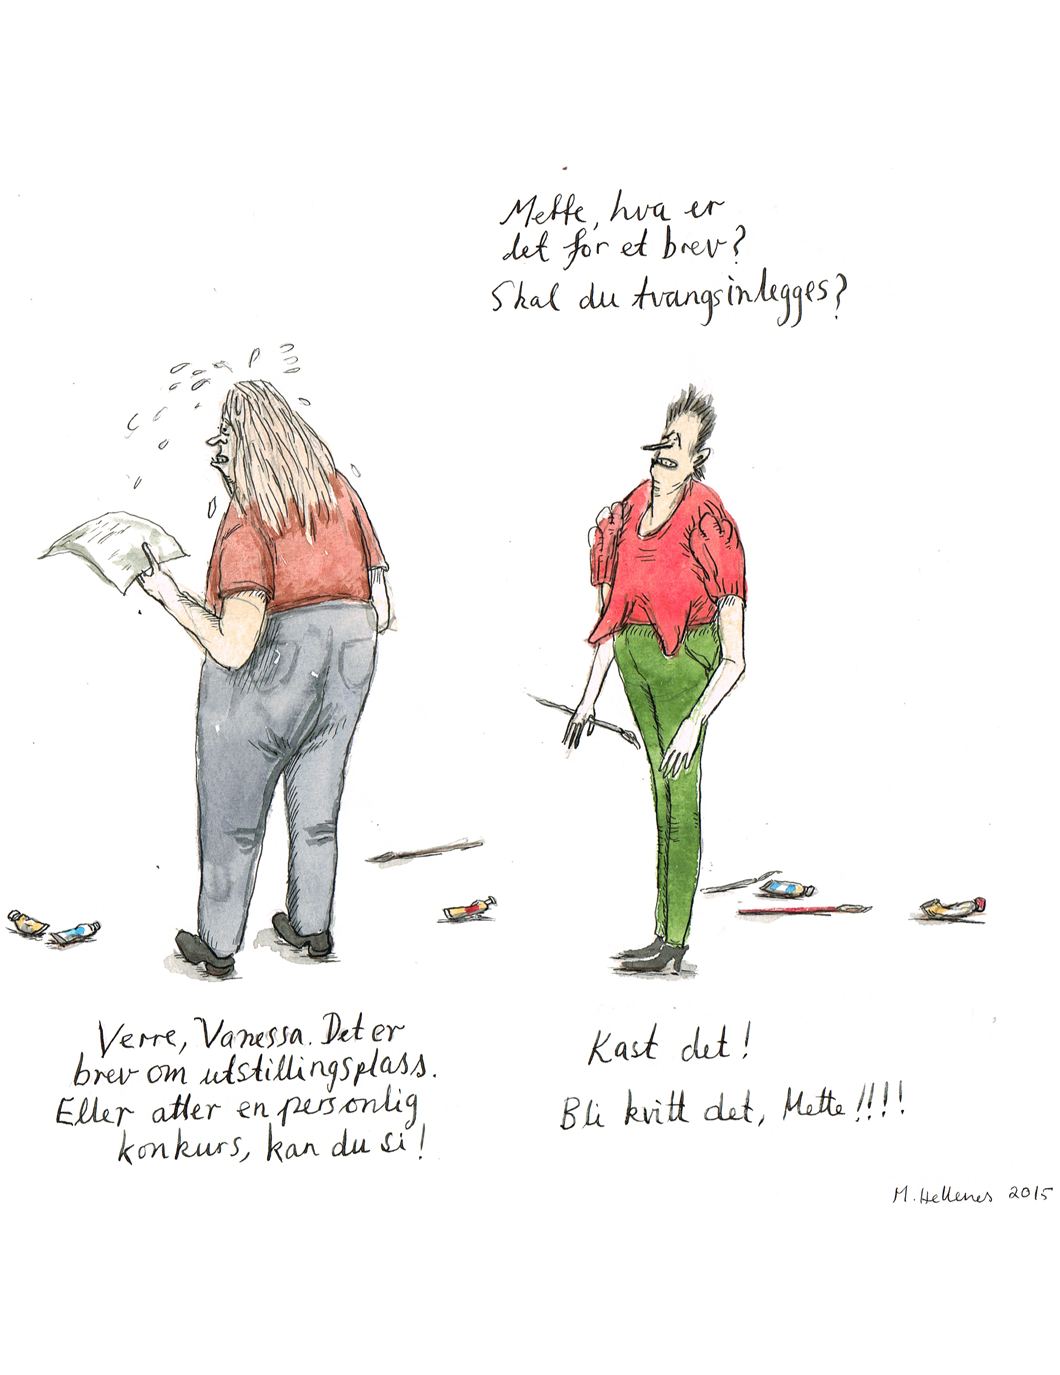 Mette, hva er
det for et brev?
Skal du tvangsinlegges?
Verre, Vanessa. Det er
brev om utstillingsplass.
Eller atter en personlig
konkurs, kan du si!
Kast det!
Bli kvitt det, Mette!!!!
M. Hellenes 2015